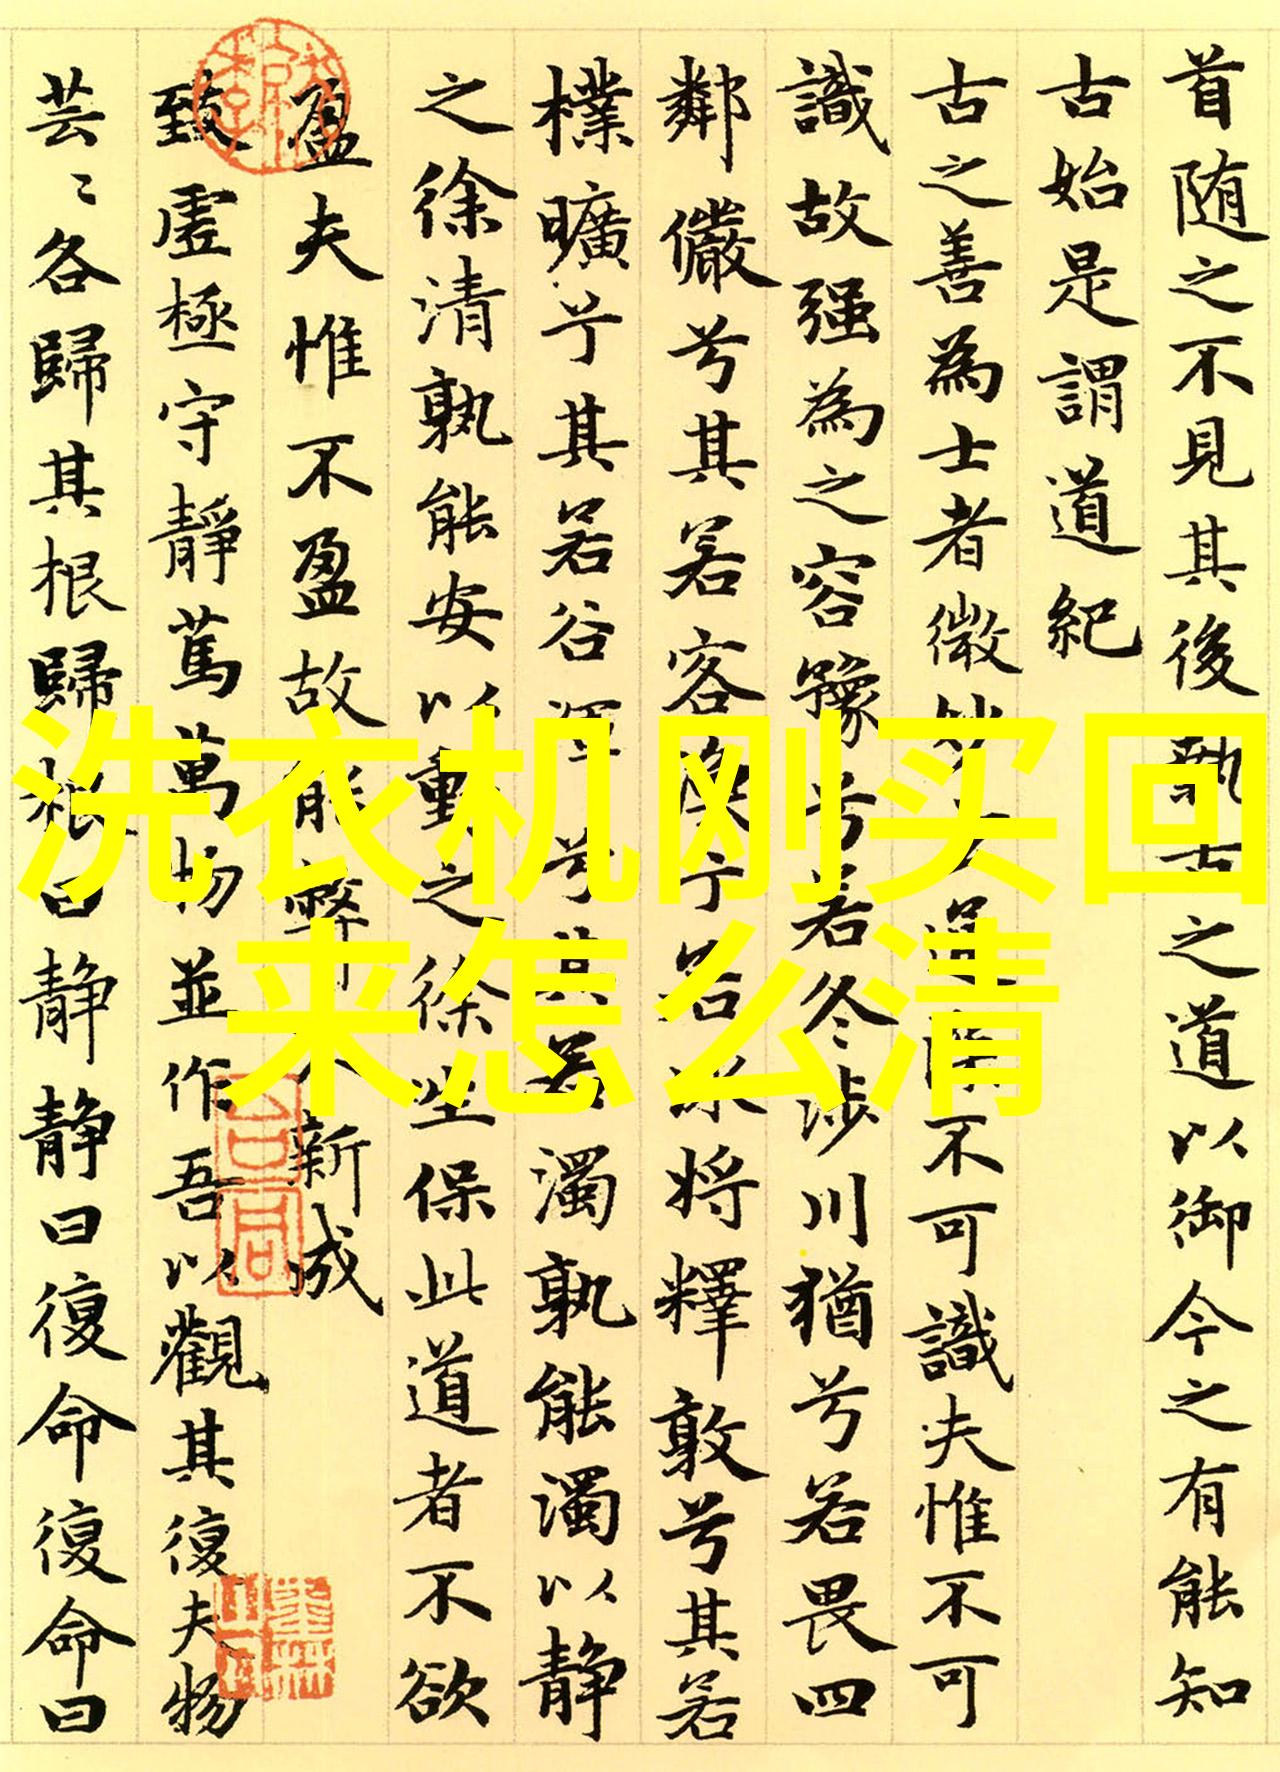 首随之不見其後執古之道以御今之有能知
古始是謂道紀
古之善為士者微妙玄通深不可識夫惟不可
識故强為之容豫兮若冬涉川猶兮若畏四
鄰儼兮其若客渙兮若冰將釋敦兮其若
樸曠兮其若谷渾兮其若濁孰能濁以静
之徐清孰能安以動之徐生保此道者不欲
盈夫惟不盈故能弊不新成
致虛極守靜篤萬物並作吾以觀其復夫物
芸〻各歸其根歸根曰静静曰復命復命曰
洗衣机刚买回
来怎么清